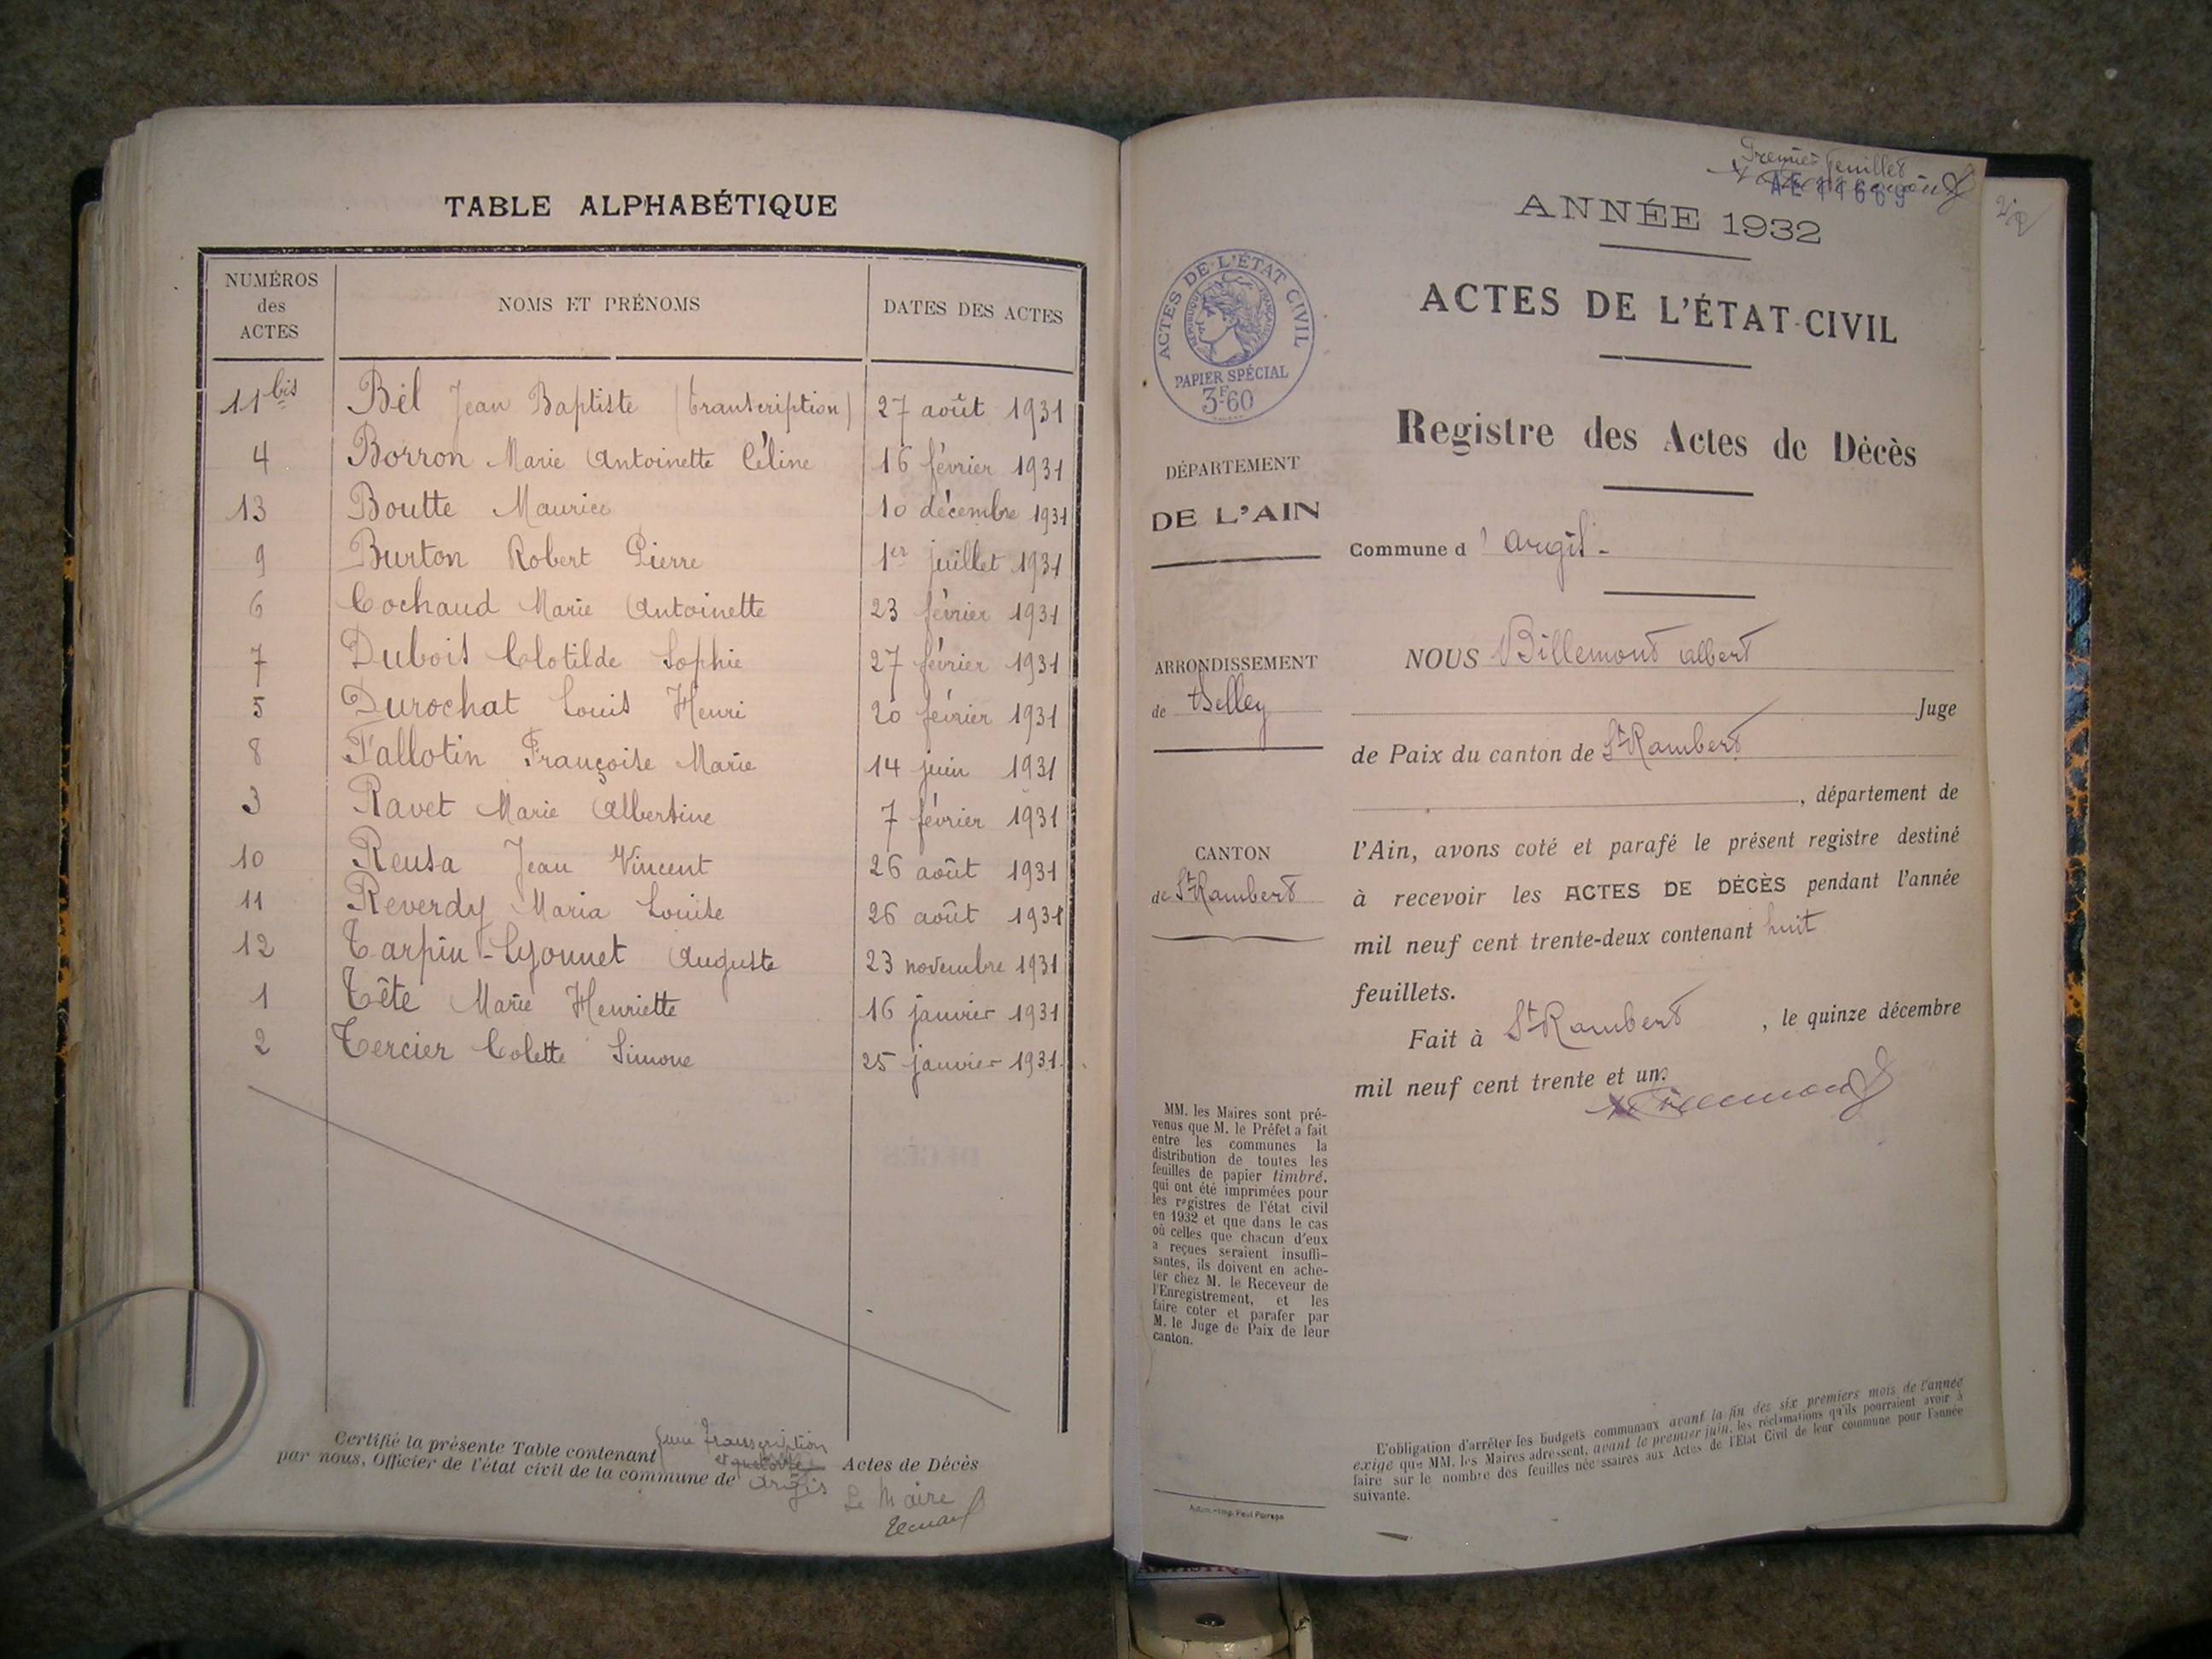 TABLE ALPHABÉTIQUE
NUMÉROS des ACTES NOMS ET PRÉNOMS DATES DES ACTES
11 bis Bél Jean Baptiste (transcription) 27 août 1931
4 Borron Marie Antoinette Céline 16 février 1931
13 Boutte Maurice 10 décembre 1931
9 Burton Robert Pierre 1er juillet 1931
6 Cochaud Marie Antoinette 23 février 1931
7 Dubois Clotilde Sophie 27 février 1931
5 Durochat Louis Henri 20 février 1931
8 Fallotin Françoise Marie 14 juin 1931
3 Ravet Marie Albertine 7 février 1931
10 Reusa Jean Vincent 26 août 1931
11 Reverdy Maria Louise 26 août 1931
12 Tarpin-Lyonnet Auguste 23 novembre 1931
1 Tête Marie Henriette 16 janvier 1931
2 Tercier Colette Simone 25 janvier 1931
Certifié la présente Table contenant une transcription et Actes de Décès
par nous, Officier de l'état civil de la commune de Argis
Le Maire
Premier feuillet
ANNÉE 1932
ACTES DE L'ÉTAT CIVIL
RÉPUBLIQUE FRANÇAISE
PAPIER SPÉCIAL
3F60
ACTES DE L'ÉTAT-CIVIL
Registre des Actes de Décès
DÉPARTEMENT
DE L'AIN
Commune d'Argis
ARRONDISSEMENT
de Belley
CANTON
de St Rambert
NOUS Billemont Albert
Juge
de Paix du canton de St Rambert
, département de
l'Ain, avons coté et parafé le présent registre destiné
à recevoir les ACTES DE DÉCÈS pendant l'année
mil neuf cent trente-deux contenant huit
feuillets.
Fait à St Rambert, le quinze décembre
mil neuf cent trente et un.
MM. les Maires sont pré-
venus que M. le Préfet a fait
entre les communes la
distribution de toutes les
feuilles de papier timbré.
qui ont été imprimées pour
les registres de l'état civil
en 1932 et que dans le cas
où celles que chacun d'eux
a reçues seraient insuffi-
santes, ils doivent en ache-
ter chez M. le Receveur de
l'Enregistrement, et les
faire coter et parafer par
M. le Juge de Paix de leur
canton.
L'obligation d'arrêter les budgets communaux avant la fin des six premiers mois de l'année
exige que MM. les Maires adressent, avant le premier juin, les réclamations qu'ils pourraient avoir à
faire sur le nombre des feuilles nécessaires aux Actes de l'Etat Civil de leur commune pour l'année
suivante.